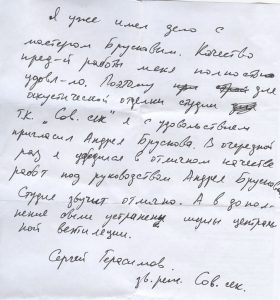 Я уже имел дело с
мастером Брусковым. Качество
пред-й работы меня полностью
удовл-ло. Поэтому для
акустической отделки студии
ТК „Сов. сек" я с удовольствием
пригласил Андрея Брускова. В очередной
раз я убедился в отличном качестве
работ под руководством Андрея Брускова
Студия звучит отлично. А в допол-
нение были устранены шумы централь
ной вентиляции.
Сергей Герасимов.
зв. реж. Сов. сек.